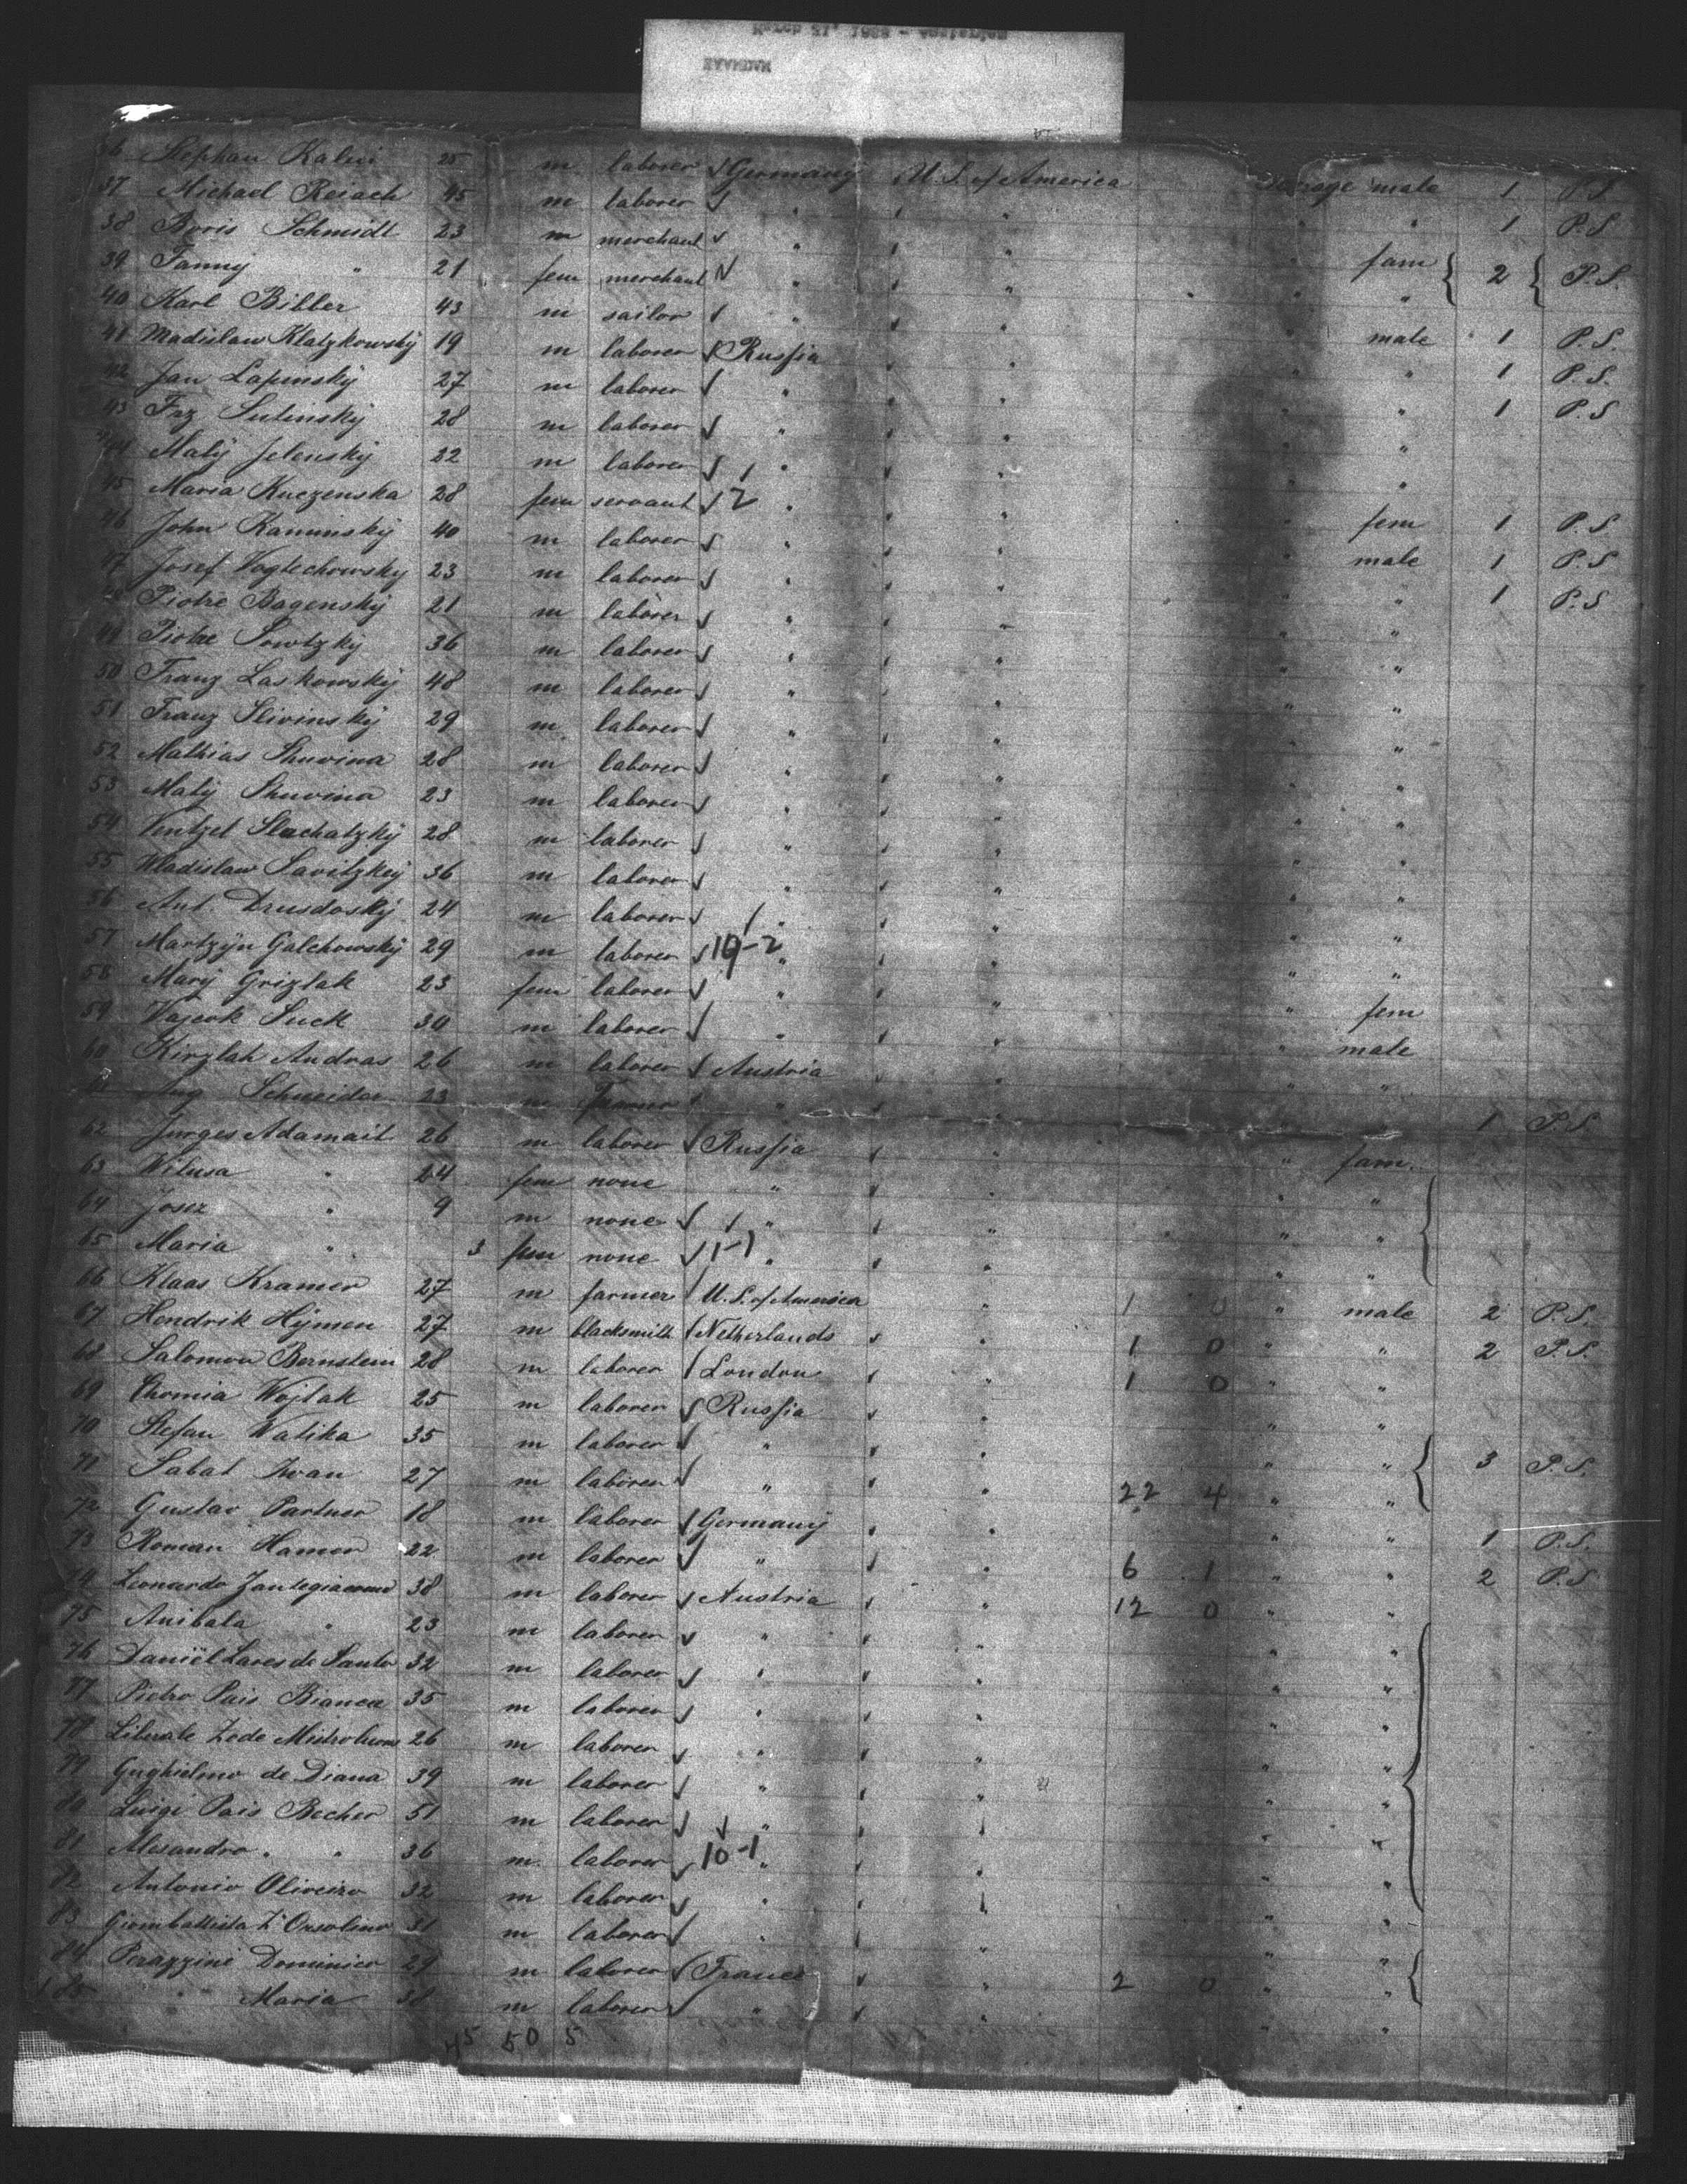 March 21, 1888 - Amsterdam
ZAANDAM
36 Stephan Kalwi 25 m laborer Germany U.S. of America Steerage male 1 P.S.
37 Michael Reisch 45 m laborer " " " 1 P.S.
38 Boris Schmidt 23 m merchant " " fam
39 Fanny " 21 fem merchant " " " " 2 P.S.
40 Karl Bibler 43 m sailor " " male 1 P.S.
41 Wladislaw Klatzkowsky 19 m laborer Russia " " " 1 P.S.
42 Jan Lapinsky 27 m laborer " " " " 1 P.S.
43 Frz Sulinsky 28 m laborer " " "
44 Maty Jelensky 22 m laborer " " "
45 Maria Kuczenska 28 fem servant 2 " " " fem 1 P.S.
46 John Kaminsky 40 m laborer " " male 1 P.S.
47 Josef Wogtechowsky 23 m laborer " " " " 1 P.S.
48 Piotre Bagensky 21 m laborer " " " "
49 Piotre Sowtzky 36 m laborer " " " "
50 Franz Laskowsky 48 m laborer " " " "
51 Franz Slivinsky 29 m laborer " " " "
52 Mathias Shuvina 28 m laborer " " " "
53 Maty Shuvina 23 m laborer " " " "
54 Ventzel Slachatzky 28 m laborer " " " "
55 Wladislaw Savitzky 36 m laborer " " " "
56 Ant. Drusdosky 24 m laborer " " " "
57 Martzyn Galchowsky 29 m laborer 19-2 " " " "
58 Mary Grizlak 23 fem laborer " " " fem
59 Wajcok Suck 30 m laborer " " " male
60 Kirzlah Andras 26 m laborer Austria " " "
61 Aug Schneider 23 m Farmer " " 1 P.S.
62 Jurges Adamait 26 m laborer Russia " " fam.
63 Wilusa " 24 fem none " " " "
64 Josez " 9 m none " " " "
65 Maria " 3 fem none 1-1 " " " "
66 Klaas Kramer 27 m farmer U.S. of America " 1 0 " male 2 P.S.
67 Hendrik Hymen 27 m blacksmith Netherlands " 1 0 " " 2 P.S.
68 Salomon Bernstein 28 m laborer London " 1 0 " "
69 Chomia Wojtak 25 m laborer Russia " " "
70 Stefan Watika 35 m laborer " " " " 3 P.S.
71 Sabat Iwan 27 m laborer " " 22 4 " "
72 Gustav Partner 18 m laborer Germany " " " 1 P.S.
73 Roman Hamer 22 m laborer " " 6 1 " " 2 P.S.
74 Leonardo Zantegiacomo 38 m laborer Austria " 12 0 " "
75 Anibala " 23 m laborer " " " "
76 Daniël Lares de Santo 32 m laborer " " " "
77 Pietro Pais Bianca 35 m laborer " " " "
78 Liberale Zede 26 m laborer " " " "
79 Gughielmo de Diana 39 m laborer " " " "
80 Luigi Pais Becher 51 m laborer " " " "
81 Alesandro " " 36 m laborer 10-1 " " " "
82 Antonio Oliveiro 32 m laborer " " " "
83 Giombattista Z'Orsolina 31 m laborer " " " "
84 Peragzini Dominico 29 m laborer France " 2 0 " "
85 " Maria 38 m laborer " " " "
45 50 5